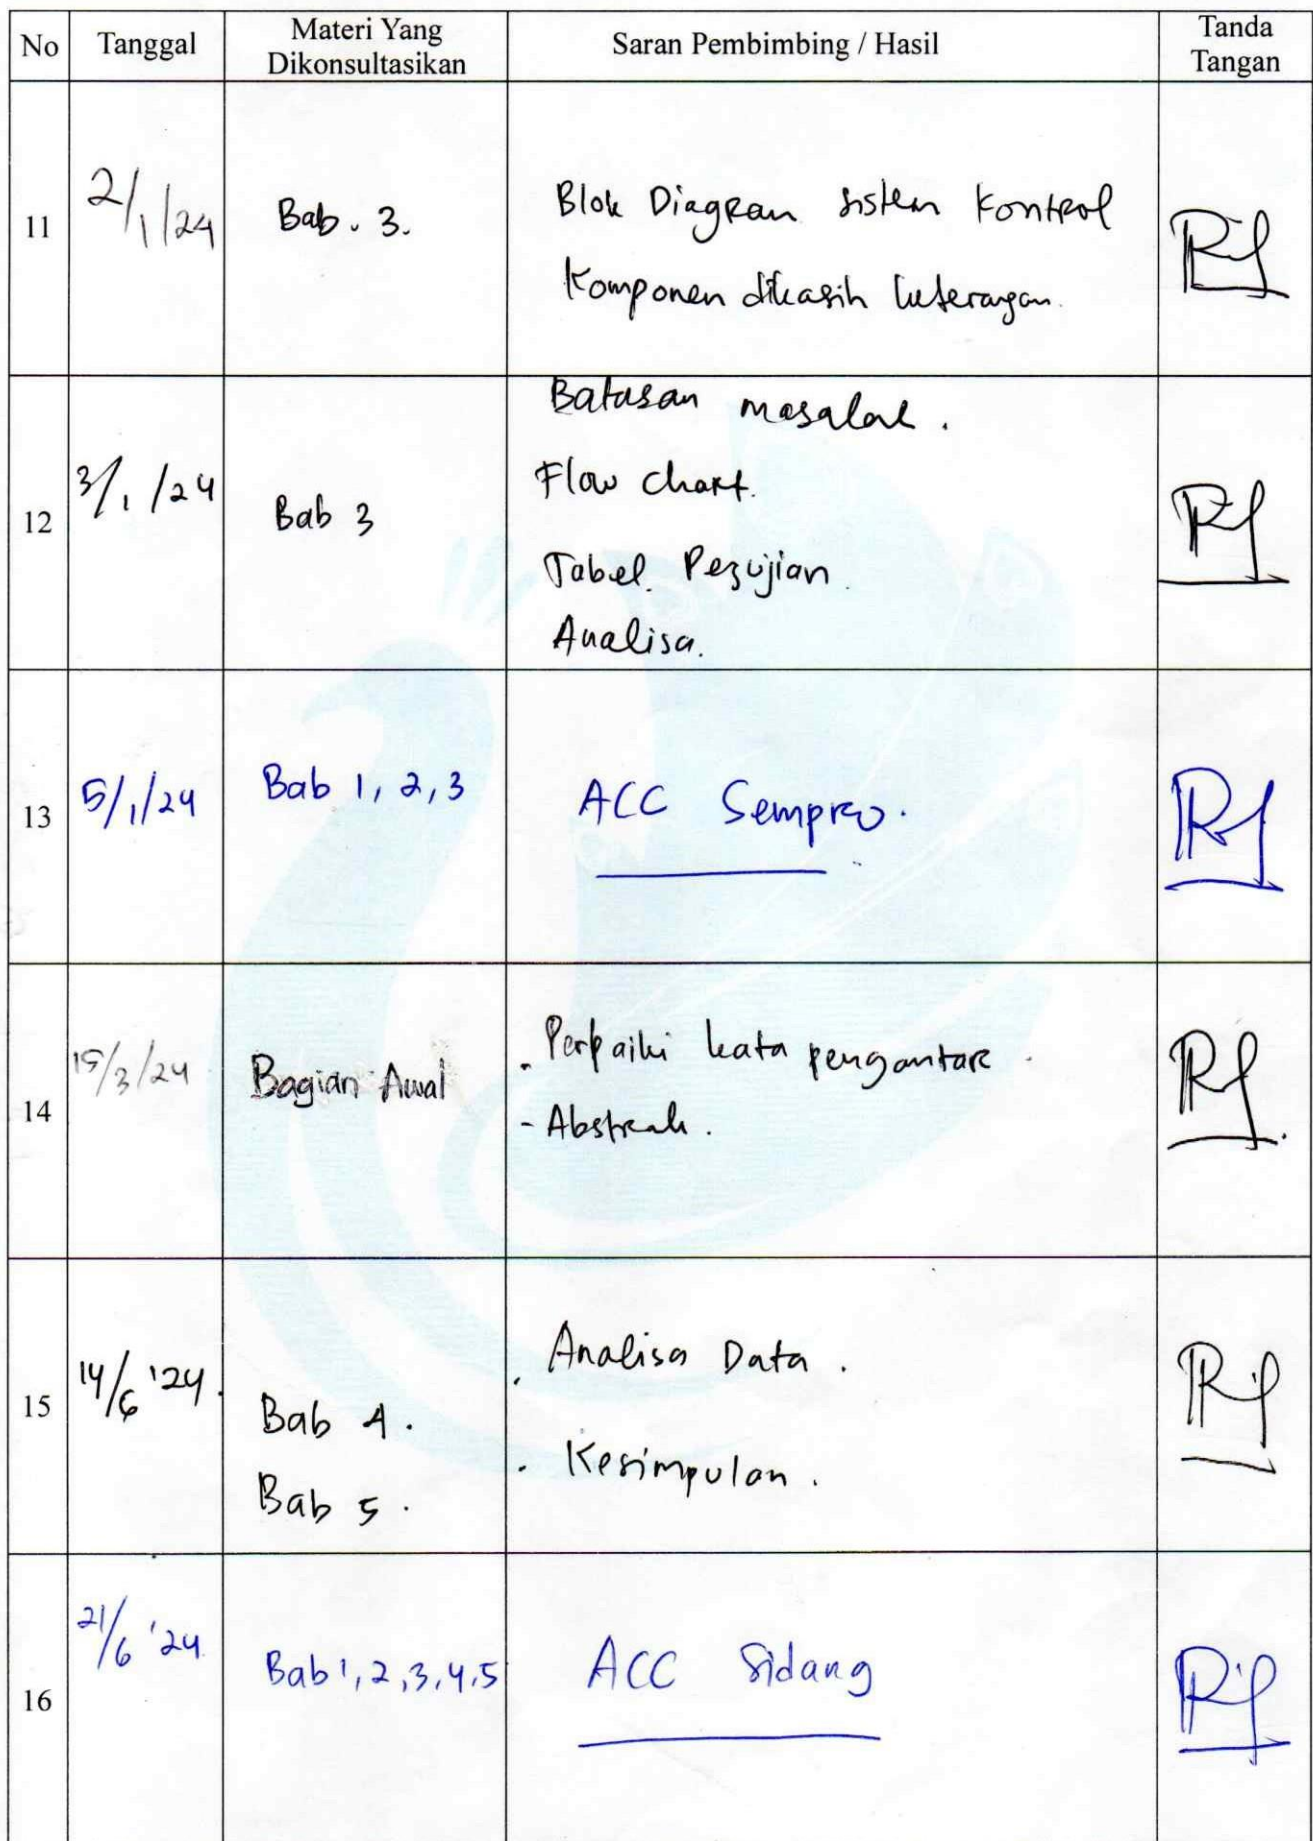 No Tanggal Materi Yang Dikonsultasikan Saran Pembimbing / Hasil Tanda Tangan
11 2/1/24 Bab. 3. Blok Diagram sistem kontrol
Komponen dikasih keterangan.
12 3/1/24 Bab 3 Batasan masalah.
Flow chart.
Tabel Pengujian
Analisa.
13 5/1/24 Bab 1, 2, 3 ACC Sempro.
14 15/3/24 Bagian Awal - Perbaiki kata pengantar
- Abstrak.
15 14/6 '24. Bab 4. . Analisa Data.
Bab 5. . Kesimpulan.
16 21/6 '24 Bab 1, 2, 3, 4, 5 ACC Sidang